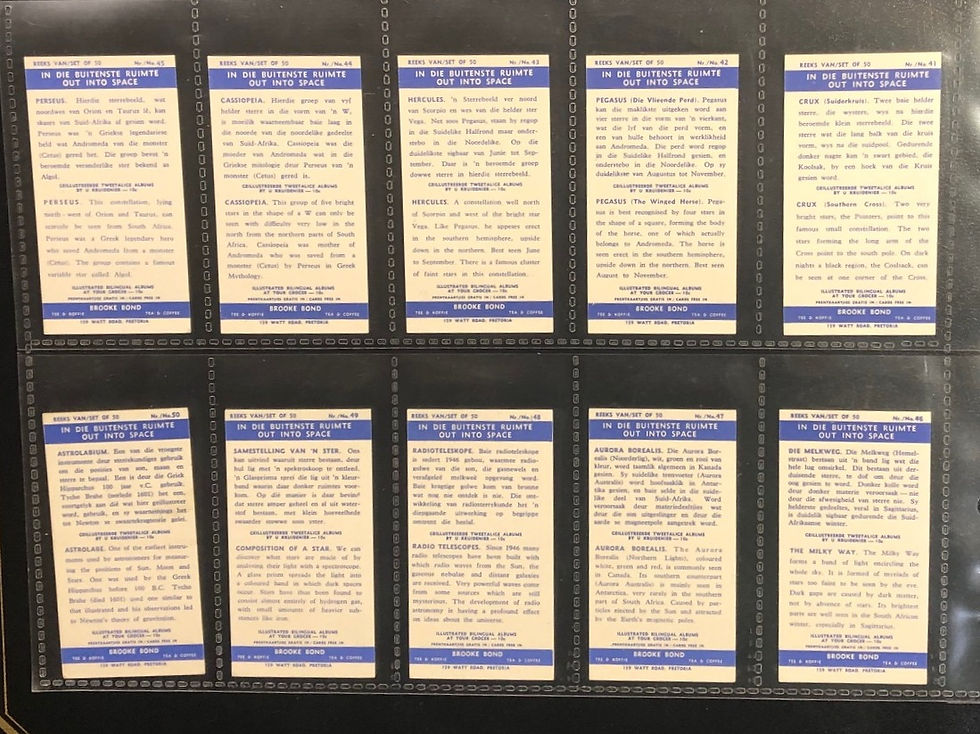 REEKS VAN/SET OF 50 Nr./No. 45
IN DIE BUITENSTE RUIMTE
OUT INTO SPACE
PERSEUS. Hierdie sterrebeeld, wat
noordwes van Orion en Taurus lê, kan
skaars van Suid-Afrika af gesien word.
Perseus was 'n Griekse legendariese
held wat Andromeda van die monster
(Cetus) gered het. Die groep bevat 'n
beroemde veranderlike ster bekend as
Algol.
GEILLUSTREERDE TWEETALIGE ALBUMS
BY U KRUIDENIER — 10c
PERSEUS. This constellation, lying
north-west of Orion and Taurus, can
scarcely be seen from South Africa.
Perseus was a Greek legendary hero
who saved Andromeda from a monster
(Cetus). The group contains a famous
variable star called Algol.
ILLUSTRATED BILINGUAL ALBUMS
AT YOUR GROCER — 10c
PRENTKAARTJIES GRATIS IN / CARDS FREE IN
BROOKE BOND
TEE & KOFFIE TEA & COFFEE
129 WATT ROAD, PRETORIA
REEKS VAN/SET OF 50 Nr./No. 44
IN DIE BUITENSTE RUIMTE
OUT INTO SPACE
CASSIOPEIA. Hierdie groep van vyf
helder sterre in die vorm van 'n W,
is moeilik waarneembaar baie laag in
die noorde van die noordelike gedeelte
van Suid-Afrika. Cassiopeia was die
moeder van Andromeda wat in die
Griekse mitologie deur Perseus van 'n
monster (Cetus) gered is.
GEILLUSTREERDE TWEETALIGE ALBUMS
BY U KRUIDENIER — 10c
CASSIOPEIA. This group of five bright
stars in the shape of a W can only be
seen with difficulty very low in the
north from the northern parts of South
Africa. Cassiopeia was mother of
Andromeda who was saved from a
monster (Cetus) by Perseus in Greek
Mythology.
ILLUSTRATED BILINGUAL ALBUMS
AT YOUR GROCER — 10c
PRENTKAARTJIES GRATIS IN / CARDS FREE IN
BROOKE BOND
TEE & KOFFIE TEA & COFFEE
129 WATT ROAD, PRETORIA
REEKS VAN/SET OF 50 Nr./No. 43
IN DIE BUITENSTE RUIMTE
OUT INTO SPACE
HERCULES. 'n Sterrebeeld ver noord
van Scorpio en wes van die helder ster
Vega. Net soos Pegasus, staan hy regop
in die Suidelike Halfrond maar onder-
stebo in die Noordelike. Op die
duidelikste sigbaar van Junie tot Sep-
tember. Daar is 'n beroemde groep
dowwe sterre in hierdie sterrebeeld.
GEILLUSTREERDE TWEETALIGE ALBUMS
BY U KRUIDENIER — 10c
HERCULES. A constellation well north
of Scorpio and west of the bright star
Vega. Like Pegasus, he appears erect
in the southern hemisphere, upside
down in the northern. Best seen June
to September. There is a famous cluster
of faint stars in this constellation.
ILLUSTRATED BILINGUAL ALBUMS
AT YOUR GROCER — 10c
PRENTKAARTJIES GRATIS IN / CARDS FREE IN
BROOKE BOND
TEE & KOFFIE TEA & COFFEE
129 WATT ROAD, PRETORIA
REEKS VAN/SET OF 50 Nr./No. 42
IN DIE BUITENSTE RUIMTE
OUT INTO SPACE
PEGASUS (Die Vlieënde Perd). Pegasus
kan die maklikste uitgeken word aan
vier sterre in die vorm van 'n vierkant,
wat die lyf van die perd vorm, en
een van hulle behoort in werklikheid
aan Andromeda. Die perd word regop
in die Suidelike Halfrond gesien, en
onderstebo in die Noordelike. Op sy
duidelikste van Augustus tot November.
GEILLUSTREERDE TWEETALIGE ALBUMS
BY U KRUIDENIER — 10c
PEGASUS (The Winged Horse). Pega-
sus is best recognised by four stars in
the shape of a square, forming the body
of the horse, one of which actually
belongs to Andromeda. The horse is
seen erect in the southern hemisphere,
upside down in the northern. Best seen
August to November.
ILLUSTRATED BILINGUAL ALBUMS
AT YOUR GROCER — 10c
PRENTKAARTJIES GRATIS IN / CARDS FREE IN
BROOKE BOND
TEE & KOFFIE TEA & COFFEE
129 WATT ROAD, PRETORIA
REEKS VAN/SET OF 50 Nr./No. 41
IN DIE BUITENSTE RUIMTE
OUT INTO SPACE
CRUX (Suiderkruis). Twee baie helder
sterre, die wysters, wys na hierdie
beroemde klein sterrebeeld. Die twee
sterre wat die lang balk van die kruis
vorm, wys na die suidpool. Gedurende
donker nagte kan 'n swart gebied, die
Koolsak, by een hoek van die Kruis
gesien word.
GEILLUSTREERDE TWEETALIGE ALBUMS
BY U KRUIDENIER — 10c
CRUX (Southern Cross). Two very
bright stars, the Pointers, point to this
famous small constellation. The two
stars forming the long arm of the
Cross point to the south pole. On dark
nights a black region, the Coalsack, can
be seen at one corner of the Cross.
ILLUSTRATED BILINGUAL ALBUMS
AT YOUR GROCER — 10c
PRENTKAARTJIES GRATIS IN / CARDS FREE IN
BROOKE BOND
TEE & KOFFIE TEA & COFFEE
129 WATT ROAD, PRETORIA
REEKS VAN/SET OF 50 Nr./No. 50
IN DIE BUITENSTE RUIMTE
OUT INTO SPACE
ASTROLABIUM. Een van die vroegste
instrumente deur sterrekundiges gebruik
om die posisies van son, maan en
sterre te bepaal. Een is deur die Griek
Hipparchus 100 jaar v.C. gebruik.
Tycho Brahe (oorlede 1601) het een,
soortgelyk aan dié wat hier geïllustreer
word, gebruik, en sy waarnemings het
tot Newton se swaartekragteorie gelei.
GEILLUSTREERDE TWEETALIGE ALBUMS
BY U KRUIDENIER — 10c
ASTROLABE. One of the earliest instru-
ments used by astronomers for measur-
ing the positions of Sun, Moon and
Stars. One was used by the Greek
Hipparchus before 100 B.C. Tycho
Brahe (died 1601) used one similar to
that illustrated and his observations led
to Newton's theory of gravitation.
ILLUSTRATED BILINGUAL ALBUMS
AT YOUR GROCER — 10c
PRENTKAARTJIES GRATIS IN / CARDS FREE IN
BROOKE BOND
TEE & KOFFIE TEA & COFFEE
129 WATT ROAD, PRETORIA
REEKS VAN/SET OF 50 Nr./No. 49
IN DIE BUITENSTE RUIMTE
OUT INTO SPACE
SAMESTELLING VAN 'N STER. Ons
kan uitvind waaruit sterre bestaan, deur
hul lig met 'n spektroskoop te ontleed.
'n Glasprisma sprei die lig uit 'n kleur-
band waarin daar donker ruimtes voor-
kom. Op dié manier is daar bevind
dat sterre amper geheel en al uit water-
stof bestaan, met klein hoeveelhede
swaarder stowwe soos yster.
GEILLUSTREERDE TWEETALIGE ALBUMS
BY U KRUIDENIER — 10c
COMPOSITION OF A STAR. We can
discover what stars are made of by
analysing their light with a spectroscope.
A glass prism spreads the light into
a coloured band in which dark spaces
occur. Stars have thus been found to
consist almost entirely of hydrogen gas,
with small amounts of heavier sub-
stances like iron.
ILLUSTRATED BILINGUAL ALBUMS
AT YOUR GROCER — 10c
PRENTKAARTJIES GRATIS IN / CARDS FREE IN
BROOKE BOND
TEE & KOFFIE TEA & COFFEE
129 WATT ROAD, PRETORIA
REEKS VAN/SET OF 50 Nr./No. 48
IN DIE BUITENSTE RUIMTE
OUT INTO SPACE
RADIOTELESKOPE. Baie radioteleskope
is sedert 1946 gebou, waarmee radio-
golwe van die son, die gasnewels en
verafgeleë melkweë opgevang word.
Baie kragtige golwe kom van bronne
wat nog nie ontdek is nie. Die ont-
wikkeling van radiosterrekunde het 'n
diepgaande uitwerking op begrippe
omtrent die heelal.
GEILLUSTREERDE TWEETALIGE ALBUMS
BY U KRUIDENIER — 10c
RADIO TELESCOPES. Since 1946 many
radio telescopes have been built with
which radio waves from the Sun, the
gaseous nebulae and distant galaxies
are received. Very powerful waves come
from some sources which are still
mysterious. The development of radio
astronomy is having a profound effect
on ideas about the universe.
ILLUSTRATED BILINGUAL ALBUMS
AT YOUR GROCER — 10c
PRENTKAARTJIES GRATIS IN / CARDS FREE IN
BROOKE BOND
TEE & KOFFIE TEA & COFFEE
129 WATT ROAD, PRETORIA
REEKS VAN/SET OF 50 Nr./No. 47
IN DIE BUITENSTE RUIMTE
OUT INTO SPACE
AURORA BOREALIS. Die Aurora Bor-
ealis (Noorderlig), wit, groen en rooi van
kleur, word taamlik algemeen in Kanada
gesien. Sy suidelike teenvoeter (Aurora
Australis) word hoofsaaklik in Antar-
tika gesien, en baie selde in die suide-
like deel van Suid-Afrika. Word
veroorsaak deur materiedeeltjies wat
deur die son uitgeslinger en deur die
aarde se magneetpole aangetrek word.
GEILLUSTREERDE TWEETALIGE ALBUMS
BY U KRUIDENIER — 10c
AURORA BOREALIS. The Aurora
Borealis (Northern Lights), coloured
white, green and red, is commonly seen
in Canada. Its southern counterpart
(Aurora Australis) is mainly seen in
Antarctica, very rarely in the southern
part of South Africa. Caused by par-
ticles ejected by the Sun and attracted
by the Earth's magnetic poles.
ILLUSTRATED BILINGUAL ALBUMS
AT YOUR GROCER — 10c
PRENTKAARTJIES GRATIS IN / CARDS FREE IN
BROOKE BOND
TEE & KOFFIE TEA & COFFEE
129 WATT ROAD, PRETORIA
REEKS VAN/SET OF 50 Nr./No. 46
IN DIE BUITENSTE RUIMTE
OUT INTO SPACE
DIE MELKWEG. Die Melkweg (Hemel-
straat) bestaan uit 'n band lig wat die
hele lug omsirkel. Dit bestaan uit der-
duisende sterre, te dof om deur die
oog gesien te word. Donker kolle word
deur donker materie veroorsaak — nie
deur die afwesigheid van sterre nie. Sy
helderste gedeeltes, veral in Sagittarius,
is duidelik sigbaar gedurende die Suid-
Afrikaanse winter.
GEILLUSTREERDE TWEETALIGE ALBUMS
BY U KRUIDENIER — 10c
THE MILKY WAY. The Milky Way
forms a band of light encircling the
whole sky. It is formed of myriads of
stars too faint to be seen by the eye.
Dark gaps are caused by dark matter,
not by absence of stars. Its brightest
parts are well seen in the South African
winter, especially in Sagittarius.
ILLUSTRATED BILINGUAL ALBUMS
AT YOUR GROCER — 10c
PRENTKAARTJIES GRATIS IN / CARDS FREE IN
BROOKE BOND
TEE & KOFFIE TEA & COFFEE
129 WATT ROAD, PRETORIA